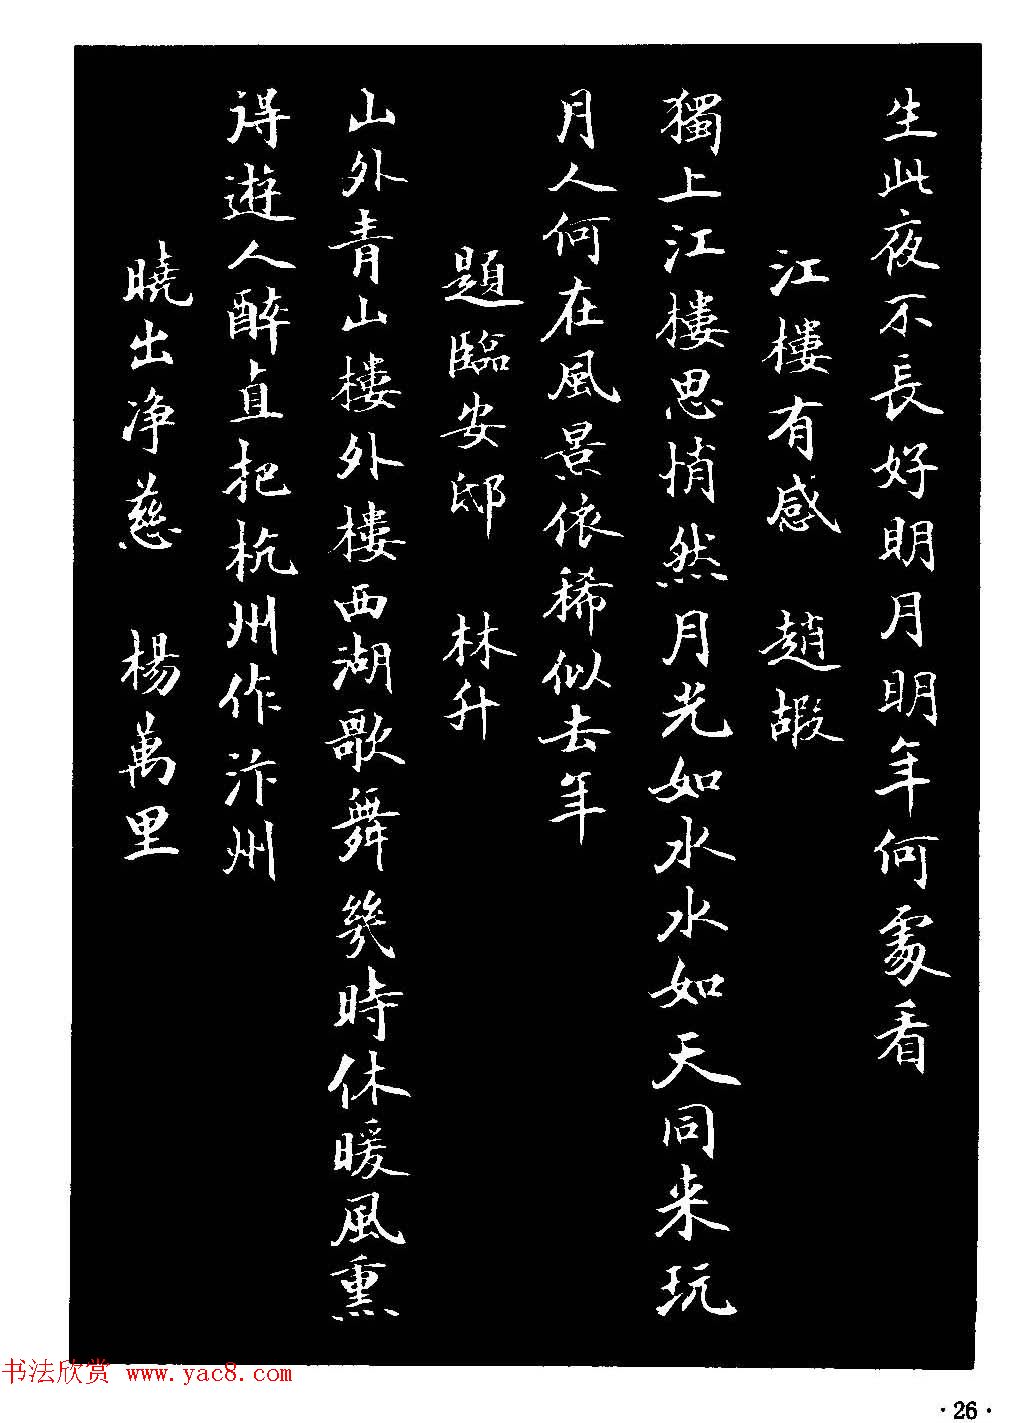 生此夜不長好明月明年何處看
江樓有感 趙嘏
獨上江樓思悄然月光如水水如天同来玩
月人何在風景依稀似去年
題臨安邸 林升
山外青山樓外樓西湖歌舞幾時休暖風熏
得遊人醉直把杭州作汴州
曉出净慈 楊萬里
书法欣赏 www.yac8.com
·26·